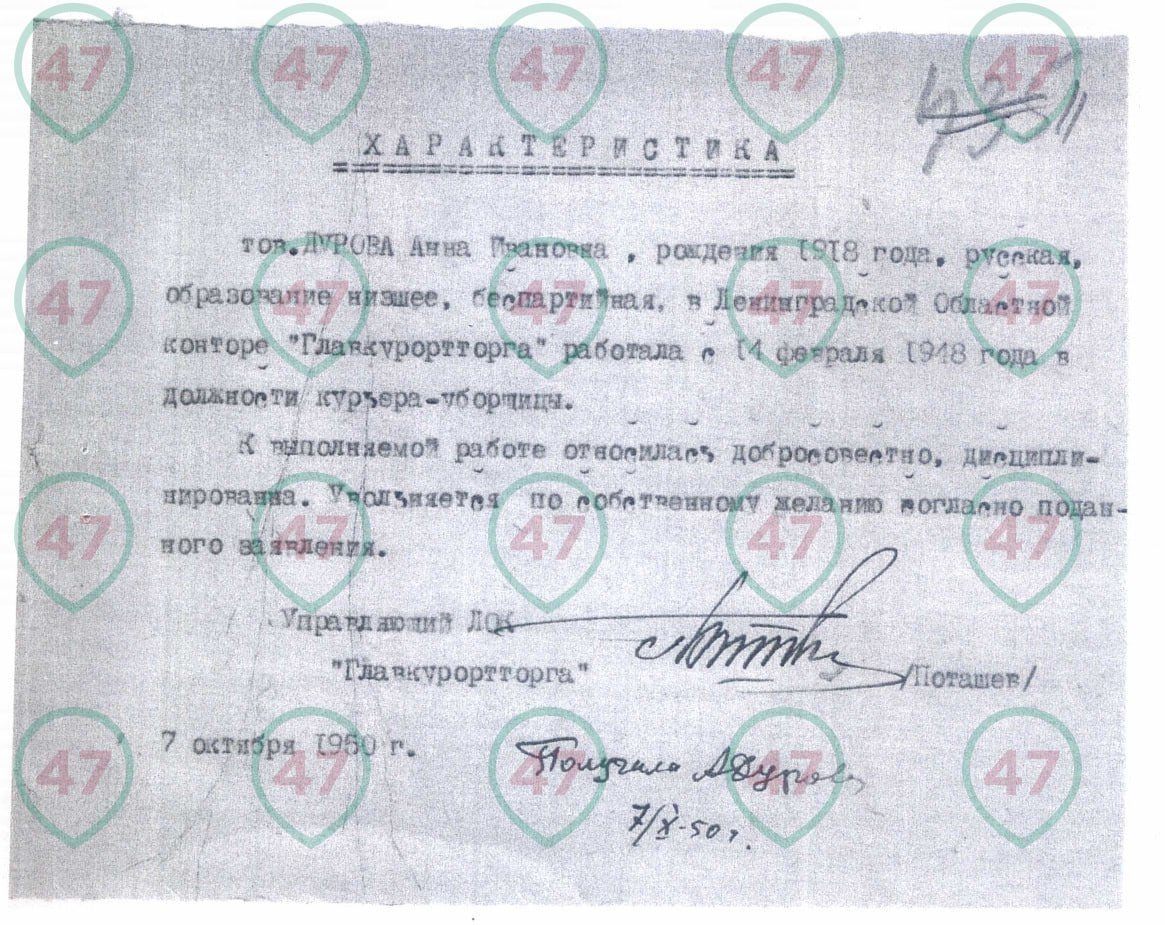 ХАРАКТЕРИСТИКА
тов.ДУРОВА Анна Ивановна , рождения 1918 года, русская,
образование низшее, беспартийная, в Ленинградской Областной
конторе "Главкурортторга" работала с 14 февраля 1948 года в
должности курьера-уборщицы.
К выполняемой работе относилась добросовестно, дисципли-
нирована. Увольняется по собственному желанию согласно подан-
ного заявления.
Управляющий ЛОК
"Главкурортторга" /Поташев/
7 октября 1950 г.
Получила АДурова
7/X-50г.
47 47 47 47 47
47 47 47 47 47
47 47 47 47 47
47 47 47 47 47